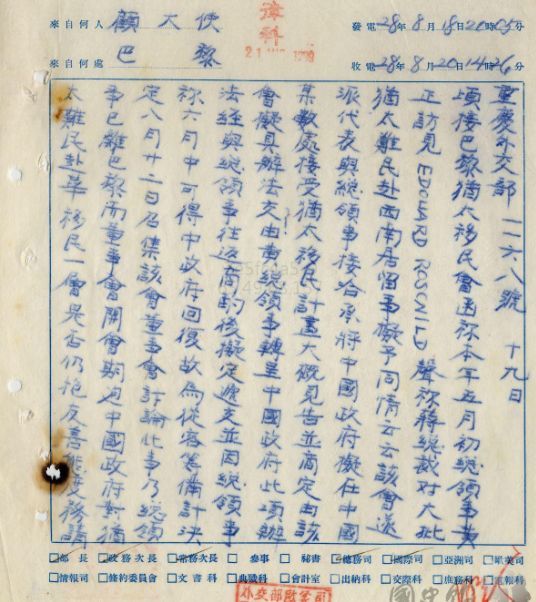 來自何人 顧大使
來自何處 巴黎
發電28年8月18日20時05分
收電28年8月20日14時26分
重慶外交部 一一六八號 十九日
頃接巴黎猶太移民會函稱本年五月初總領事黃
正訪見 EDOUARD ROSCWILD 聲稱蔣總裁對大批
猶太難民赴西南居留事擬予同情云云該會遂
派代表與總領事接洽承將中國政府擬在中國
集數處接受猶太移民計畫大概見告並商定由該
會擬具辦法交由黃總領事轉呈中國政府此項辦
法經與總領事往返商酌後擬定遞交並因總領事
稱六月中可得中政府回復故為從容籌備計決
定八月廿二日召集該會董事會討論此事乃總領
事已離巴黎而董事會開會期迫中國政府對猶
太難民赴華移民一層是否仍抱友善態度務請
部長 政務次長 常務次長 參事 祕書 總務司 國際司 亞洲司 歐美司
情報司 條約委員會 文書科 典職科 會計室 出納科 交際科 庶務科 電報科
外交部歐美司